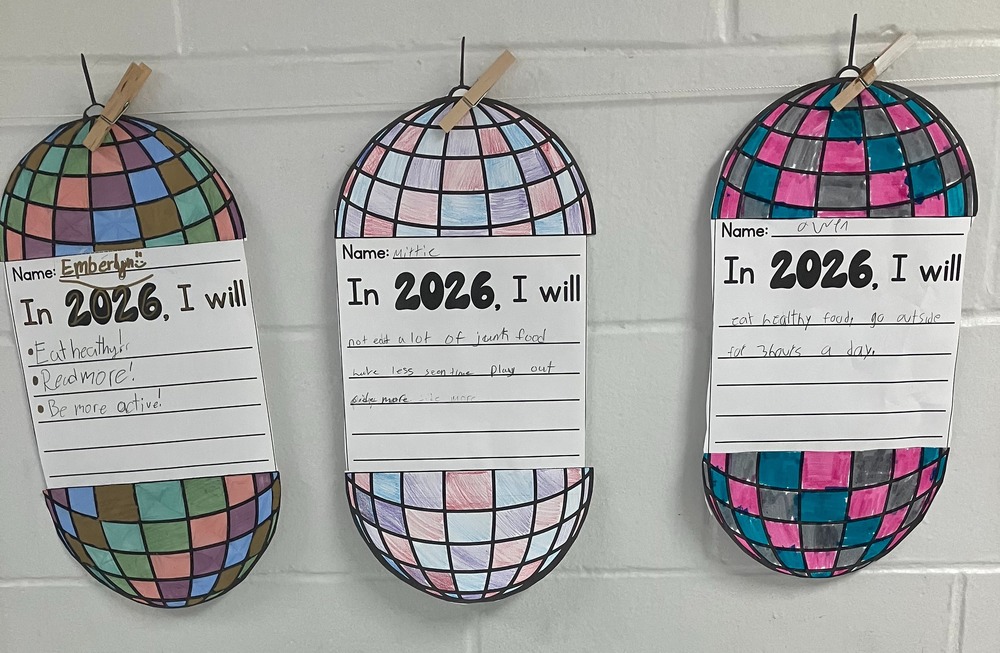 Name: Emberlyn
In 2026, I will
• Eat healthy!
• Read more!
• Be more active!
Name: Mittie
In 2026, I will
not eat a lot of junk food
make less seen time play out
more
Name: owen
In 2026, I will
eat healthy food, go outside
for 3hours a day.